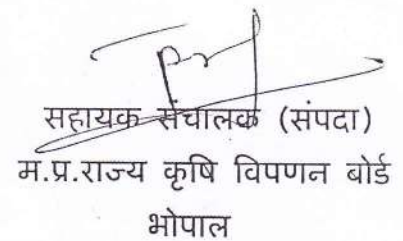 सहायक संचालक (संपदा)
म.प्र.राज्य कृषि विपणन बोर्ड
भोपाल